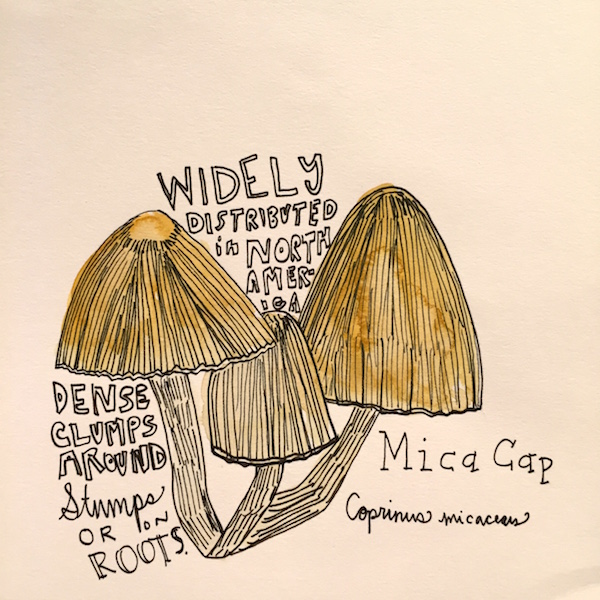 WIDELY
DISTRIBUTED
in NORTH
AMER-
ICA
DENSE
CLUMPS
AROUND
Stumps
OR ON
ROOTS.
Mica Cap
Coprinus micaceus